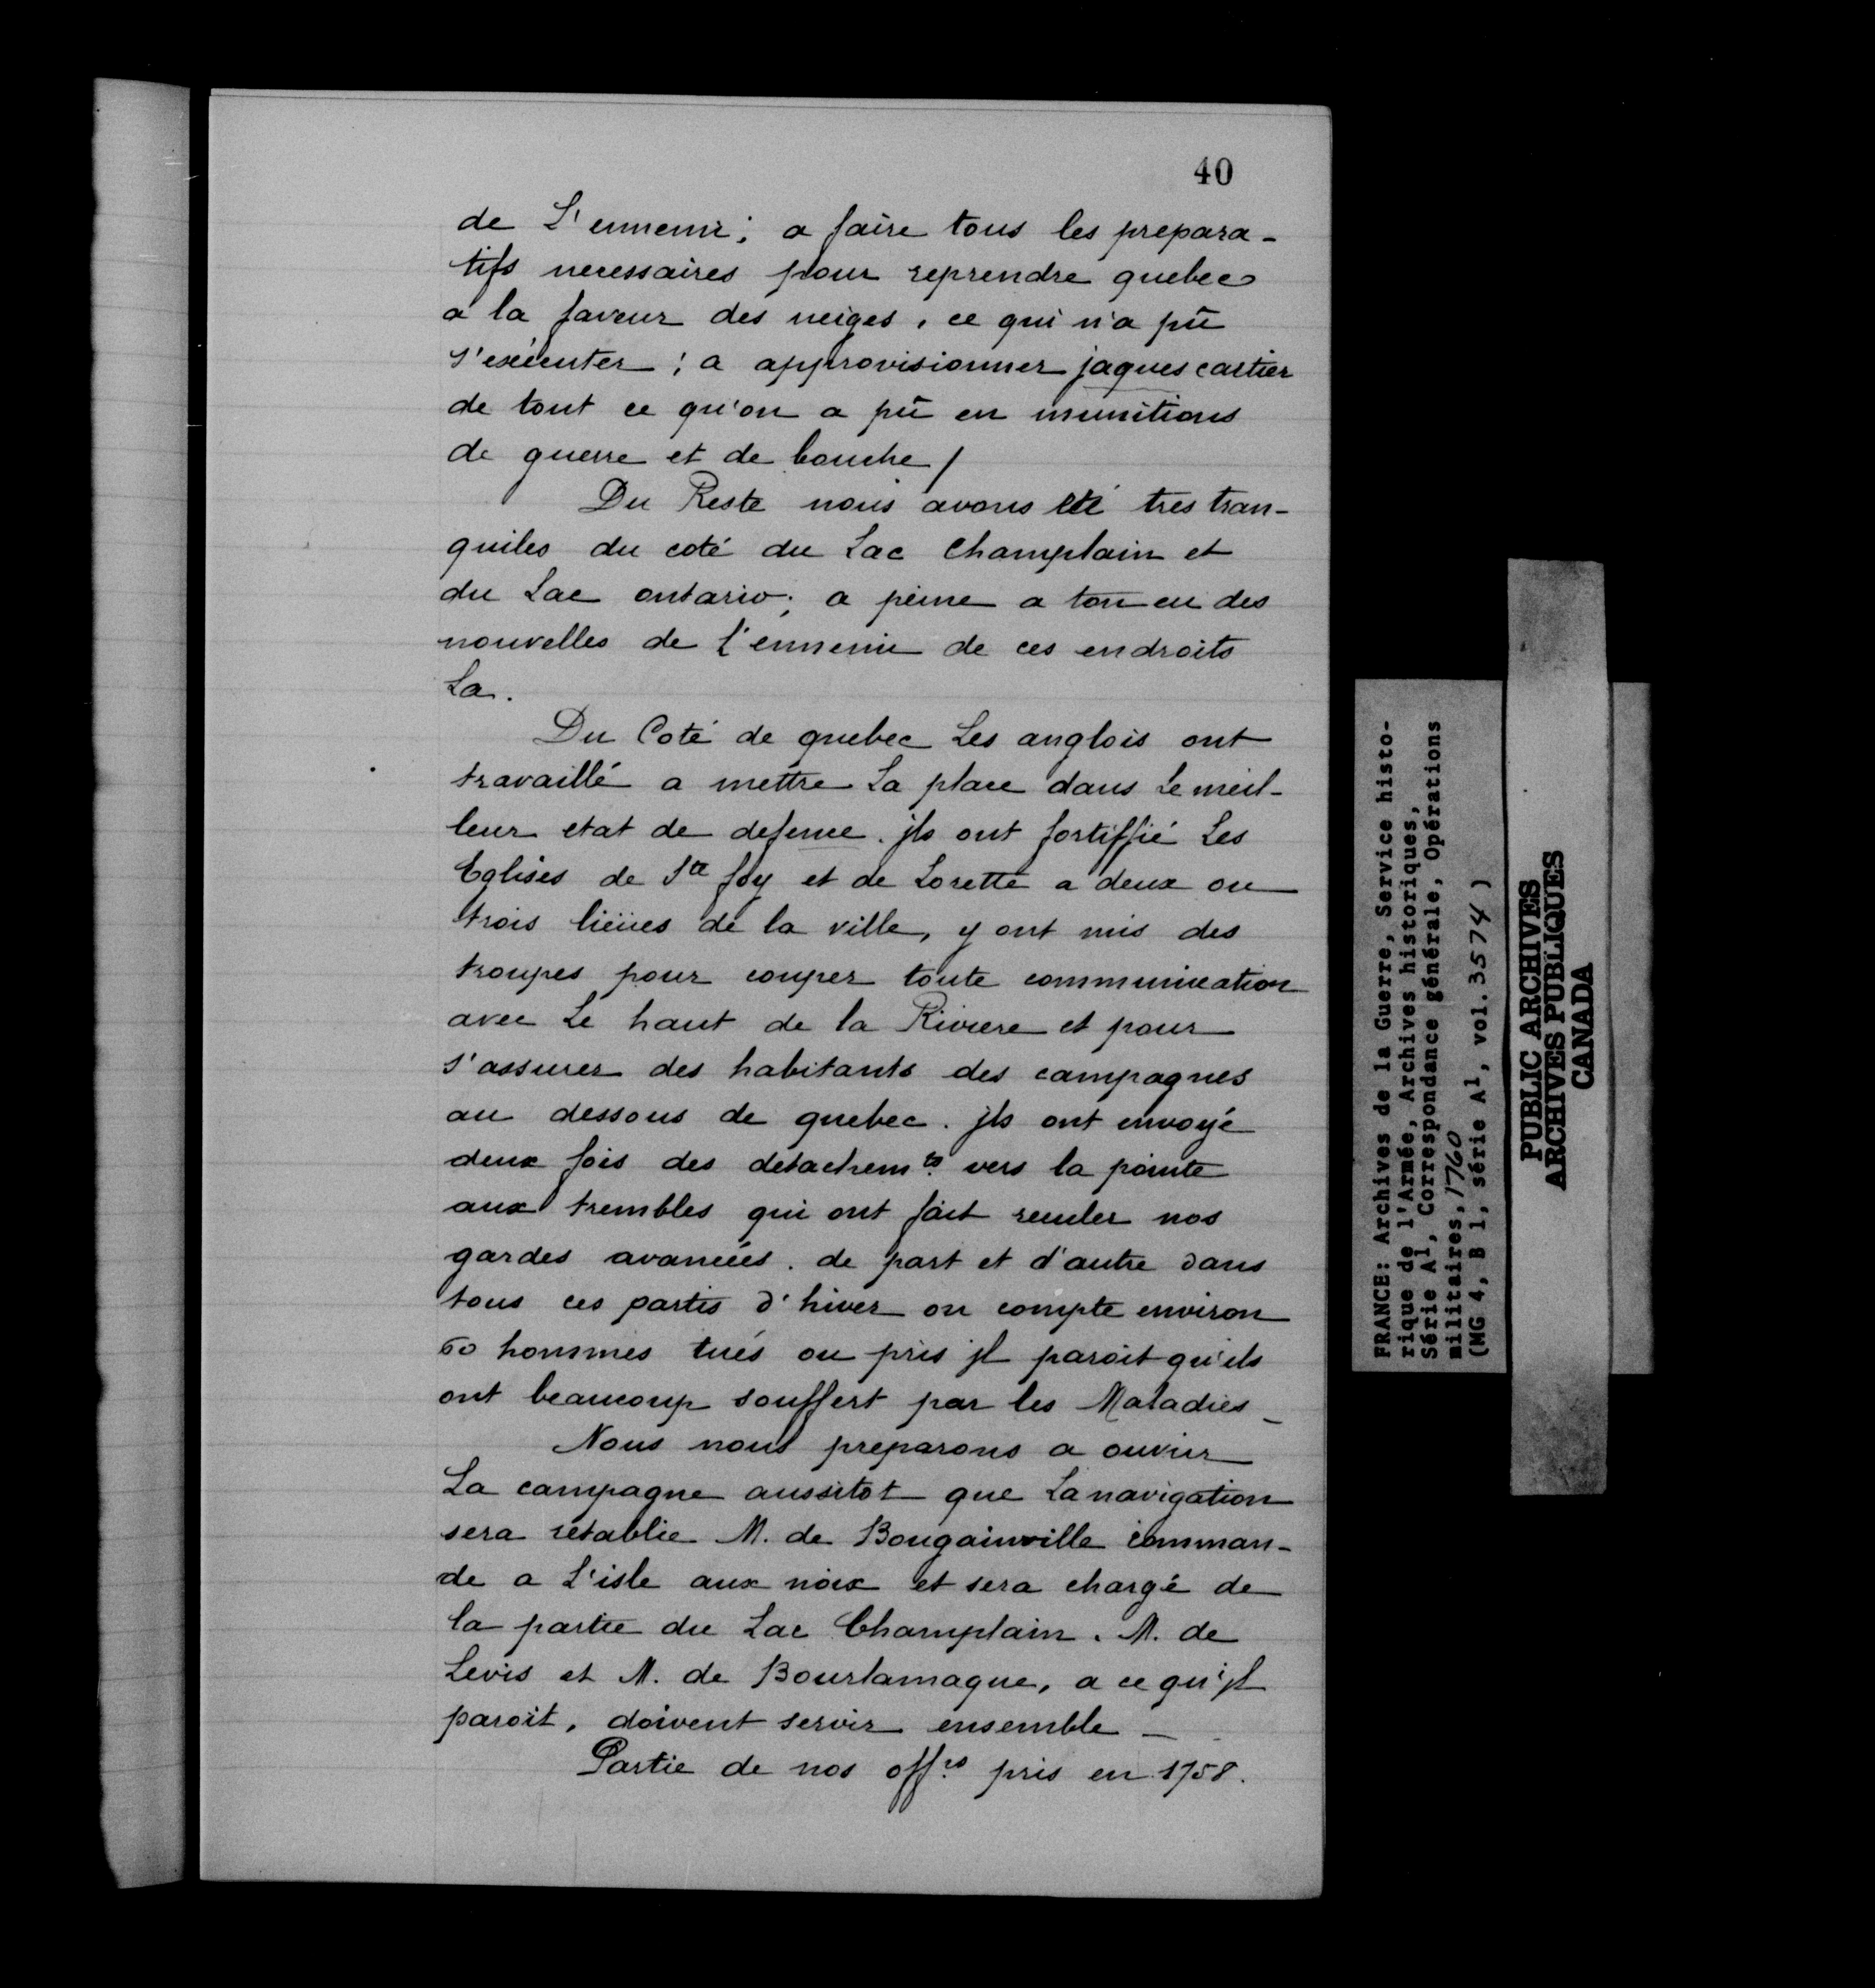 40
de L'ennemi; a faire tous les prepara-
tifs necessaires pour reprendre quebec
a la faveur des neiges, ce qui n'a pû
s'exécuter; a approvisionner jaques cartier
de tout ce qu'on a pû en munitions
de guerre et de bouche/
Du Reste nous avons été tres tran-
quiles du coté du Lac Champlain et
du Lac ontario; a peine a ton eu des
nouvelles de l'ennemi de ces endroits
La.
Du Coté de quebec Les anglois ont
travaillé a mettre La place dans Le meil-
leur etat de defense. jls ont fortiffié Les
Eglises de Ste foy et de Lorette a deux ou
trois lieües de la ville, y ont mis des
troupes pour couper toute communication
avec Le haut de la Riviere et pour
s'assurer des habitants des campagnes
au dessous de quebec. jls ont envoyé
deux fois des detachemts vers la pointe
aux trembles qui ont fait reculer nos
gardes avancées. de part et d'autre dans
tous ces partis d'hiver on compte environ
60 hommes tués ou pris jl paroit qu'ils
ont beaucoup souffert par les Maladies_
Nous nous preparons a ouvrir
La campagne aussitot que La navigation
sera retablie M. de Bougainville comman-
de a L'isle aux noix et sera chargé de
la partie du Lac Champlain. M. de
Levis et M. de Bourlamaque, a ce qu'jl
paroit, doivent servir ensemble_
Partie de nos offrs pris en 1758.
FRANCE: Archives de la Guerre, Service histo-
rique de l'Armée, Archives historiques,
Série A1, Correspondance générale, Opérations
militaires, 1760
(MG 4, B 1, série A1, vol. 3574)
PUBLIC ARCHIVES
ARCHIVES PUBLIQUES
CANADA